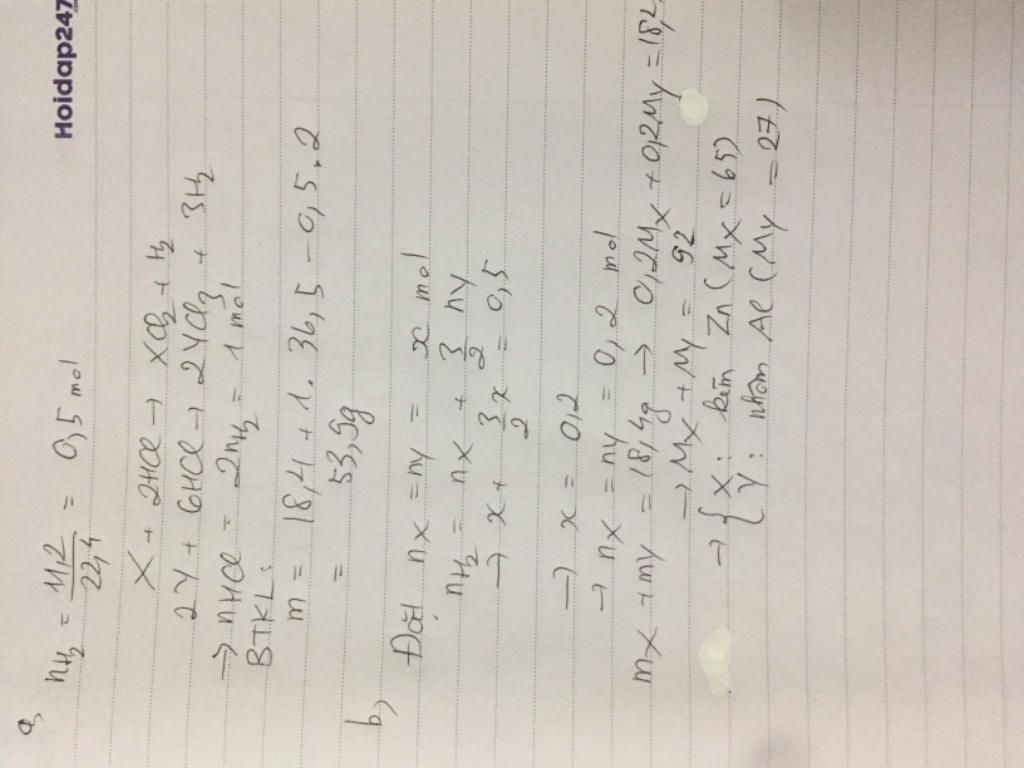 Hoidap247
a,
nH₂ = 11,2/22,4 = 0,5 mol
X + 2HCl → XCl₂ + H₂
2Y + 6HCl → 2YCl₃ + 3H₂
→ nHCl = 2nH₂ = 1 mol
BTKL:
m = 18,4 + 1. 36,5 - 0,5.2
= 53,9g
b,
Đặt nX = nY = x mol
nH₂ = nX + 3/2 nY
→ x + 3/2 x = 0,5
→ x = 0,2
→ nX = nY = 0,2 mol
mX + mY = 18,4g → 0,2MX + 0,2MY = 18,4
→ MX + MY = 92
→ { X: kẽm Zn (MX = 65)
Y: nhôm Al (MY = 27)